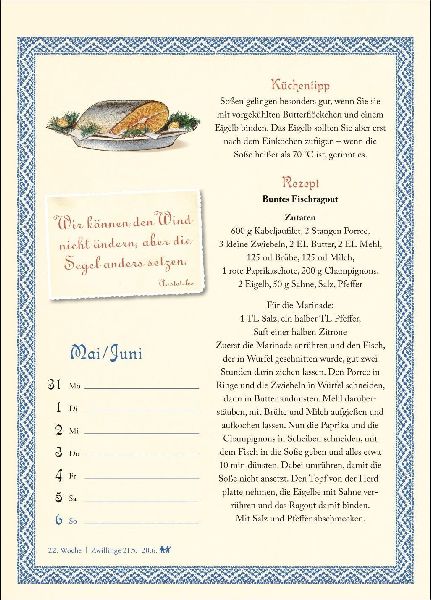 Küchentipp
Soßen gelingen besonders gut, wenn Sie sie
mit vorgekühlten Butterflöckchen und einem
Eigelb binden. Das Eigelb sollten Sie aber erst
nach dem Einkochen zufügen – wenn die
Soße heißer als 70 °C ist, gerinnt es.
Rezept
Buntes Fischragout
Zutaten
600 g Kabeljaufilet, 2 Stangen Porree,
3 kleine Zwiebeln, 2 EL Butter, 2 EL Mehl,
125 ml Brühe, 125 ml Milch,
1 rote Paprikaschote, 200 g Champignons,
2 Eigelb, 50 g Sahne, Salz, Pfeffer
Für die Marinade:
1 TL Salz, ein halber TL Pfeffer,
Saft einer halben Zitrone
Zuerst die Marinade anrühren und den Fisch,
der in Würfel geschnitten wurde, gut zwei
Stunden darin ziehen lassen. Den Porree in
Ringe und die Zwiebeln in Würfel schneiden,
dann in Butter andünsten. Mehl darüber-
stäuben, mit Brühe und Milch aufgießen und
aufkochen lassen. Nun die Paprika und die
Champignons in Scheiben schneiden, mit
dem Fisch in die Soße geben und alles etwa
10 min dünsten. Dabei umrühren, damit die
Soße nicht ansetzt. Den Topf von der Herd-
platte nehmen, die Eigelbe mit Sahne ver-
rühren und das Ragout damit binden.
Mit Salz und Pfeffer abschmecken.
Wir können den Wind
nicht ändern, aber die
Segel anders setzen.
Aristoteles
Mai/Juni
31 Mo
1 Di
2 Mi
3 Do
4 Fr
5 Sa
6 So
22. Woche | Zwillinge 21.5.–20.6.